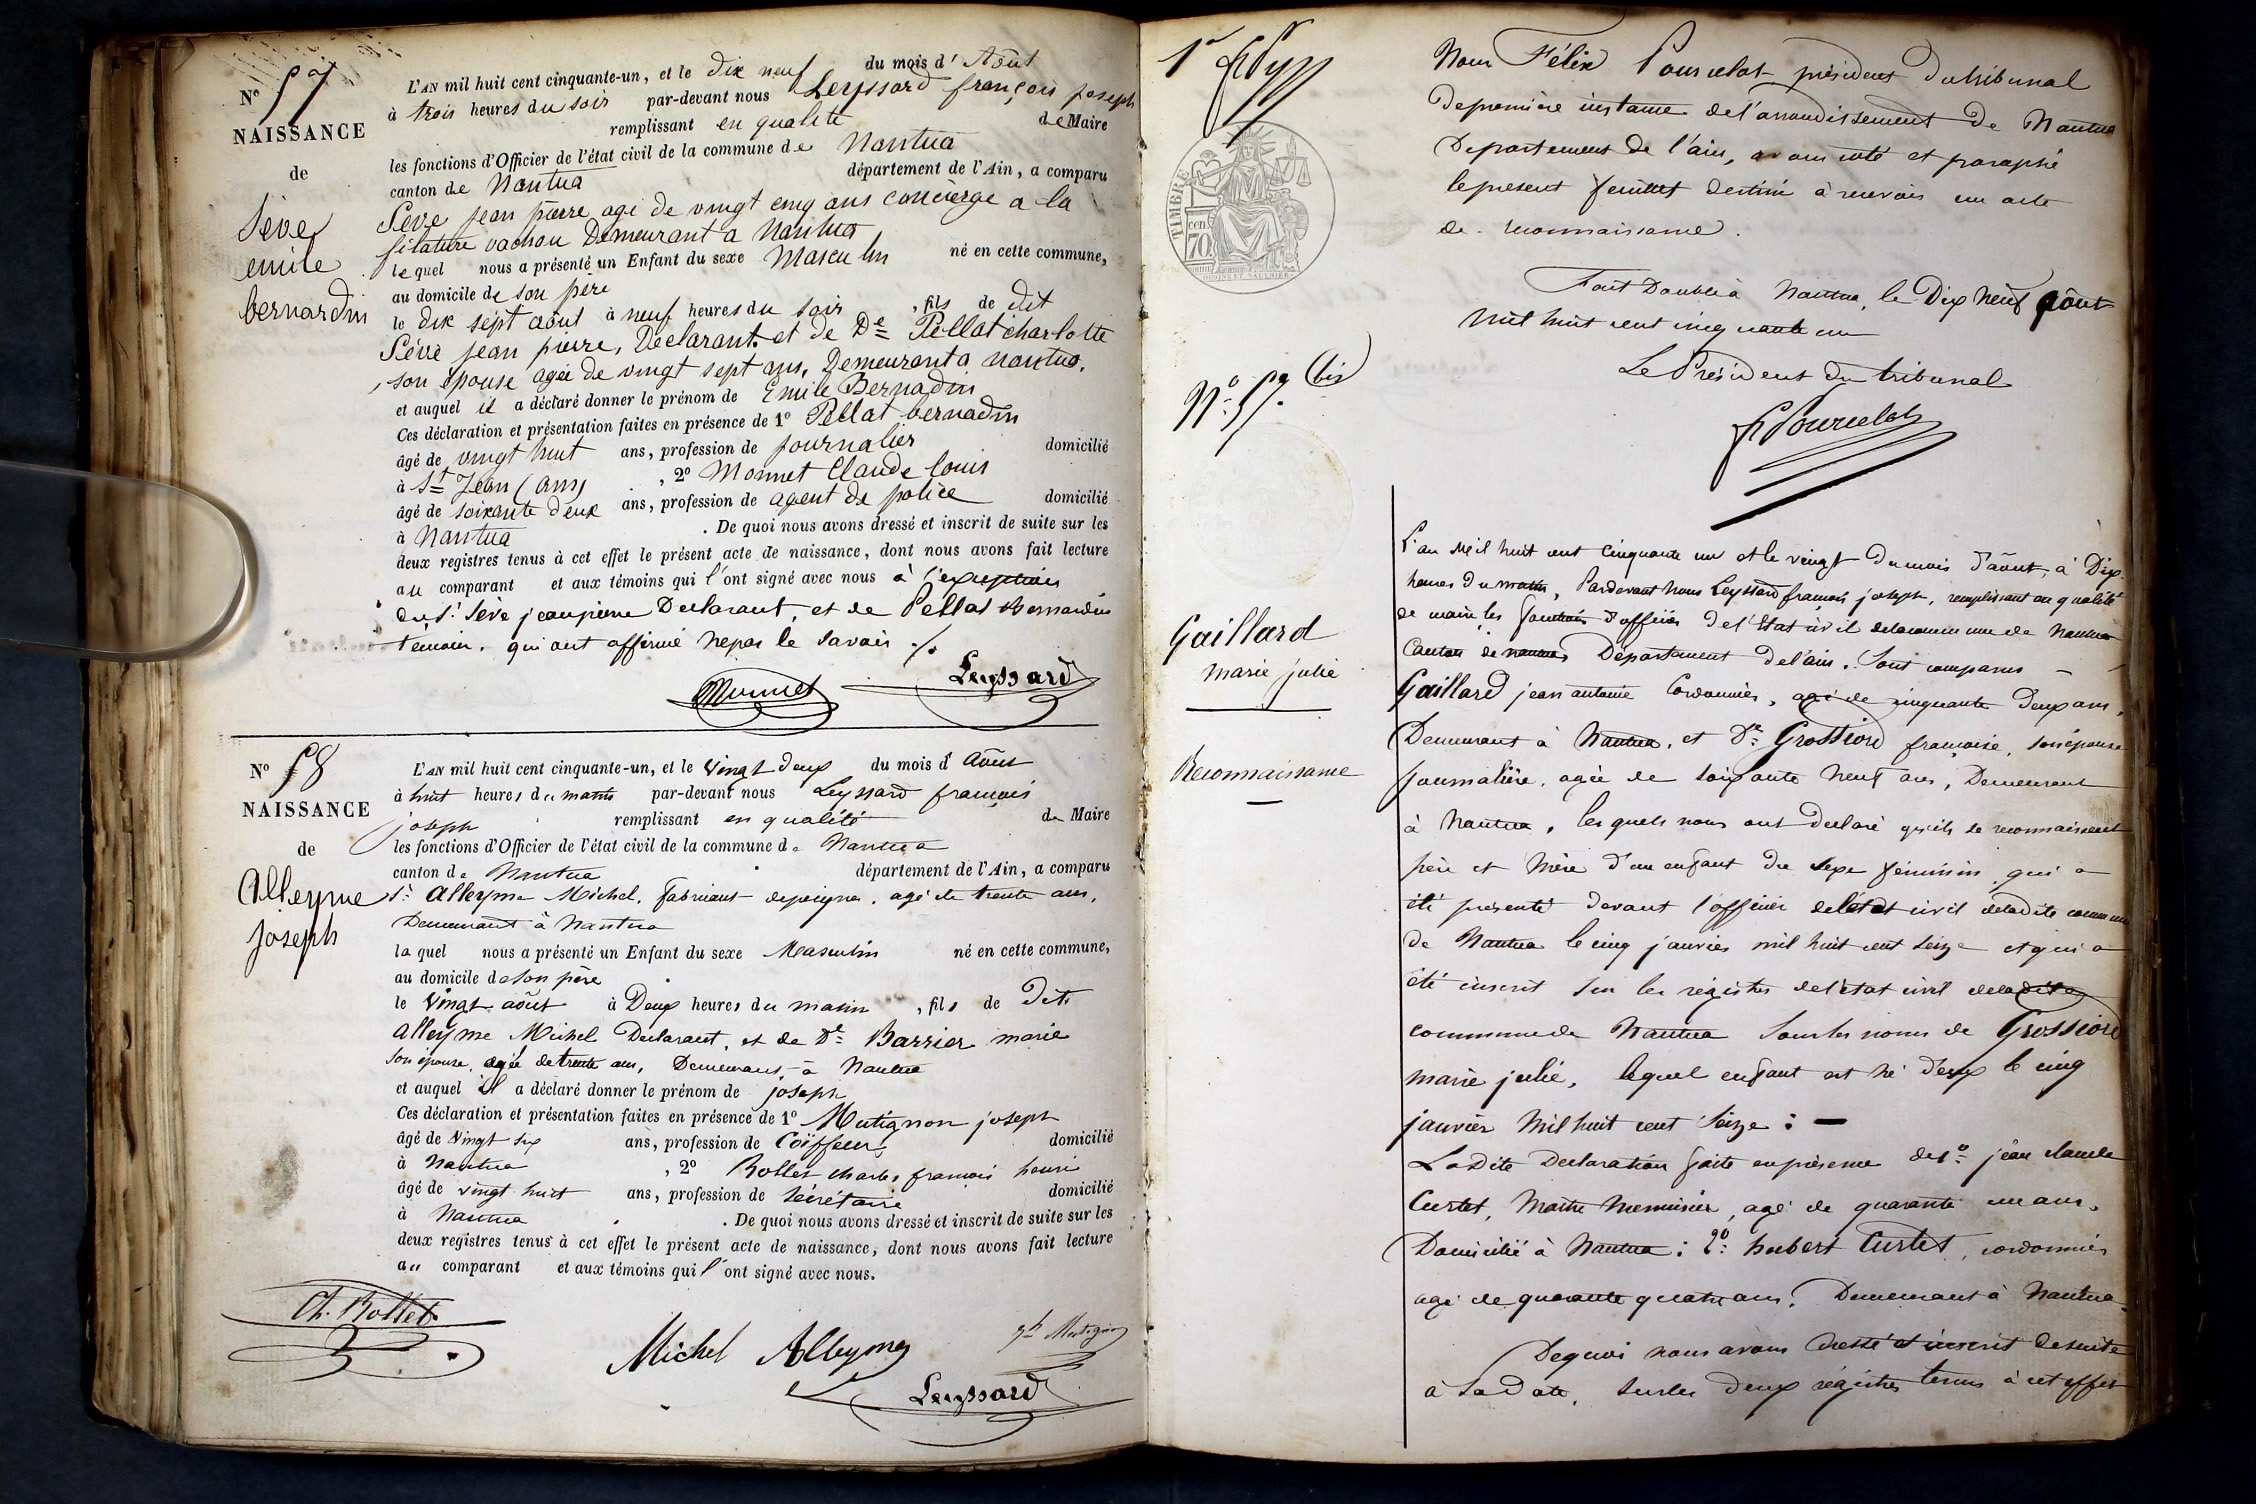 N° 57
NAISSANCE
de
Sève
emile
bernardin
L'AN mil huit cent cinquante-un, et le dix neuf du mois d' Août
à trois heures du soir par-devant nous Leyssard françois joseph
remplissant en qualité de Maire
les fonctions d'Officier de l'état civil de la commune de Nantua
canton de Nantua département de l'Ain, a comparu
Sève jean pierre agé de vingt cinq ans concierge a la
filature vachon Demeurant a Nantua
lequel nous a présenté un Enfant du sexe Masculin né en cette commune,
au domicile de son père
le dix sept aout à neuf heures du soir , fils de dit
Sève jean pierre, Déclarant et de De Pellat charlotte
son épouse agée de vingt sept ans, Demeurant a nantua.
et auquel il a déclaré donner le prénom de Emile Bernadin
Ces déclaration et présentation faites en présence de 1° Pellat bernadin
âgé de vingt huit ans, profession de journalier domicilié
à St Jean (ain) , 2° Monnet Claude louis
âgé de soixante deux ans, profession de agent de police domicilié
à Nantua . De quoi nous avons dressé et inscrit de suite sur les
deux registres tenus à cet effet le présent acte de naissance, dont nous avons fait lecture
au comparant et aux témoins qui l'ont signé avec nous à l'exception
du Sr Sève jean pierre Déclarant, et de Pellat Bernardin
temoin, qui ont affirmé ne pas le savoir ./.
Monnet Leyssard
N° 58
NAISSANCE
de
Alleyme
joseph
L'AN mil huit cent cinquante-un, et le vingt deux du mois d' août
à huit heures du matin par-devant nous Leyssard françois
joseph remplissant en qualité de Maire
les fonctions d'Officier de l'état civil de la commune de Nantua
canton de Nantua département de l'Ain, a comparu
Sr Alleyme Michel, fabricant de peignes, agé de trente ans,
Demeurant à Nantua
la quel nous a présenté un Enfant du sexe Masculin né en cette commune,
au domicile de son père
le vingt août à Deux heures du matin , fils de Dit
Alleyme Michel Déclarant, et de De Barrier marie
son épouse, agée de trente ans, Demeurant à Nantua
et auquel il a déclaré donner le prénom de joseph
Ces déclaration et présentation faites en présence de 1° Mutignon joseph
âgé de vingt six ans, profession de Coiffeur domicilié
à Nantua , 2° Rollet charles françois henri
âgé de vingt huit ans, profession de Sécrétaire domicilié
à Nantua . De quoi nous avons dressé et inscrit de suite sur les
deux registres tenus à cet effet le présent acte de naissance, dont nous avons fait lecture
au comparant et aux témoins qui l'ont signé avec nous.
Ch. Rollet
Michel Alleyme
jh Mutignon
Leyssard
Nous Félix Pourcelot président du tribunal
de première instance de l'arrondissement de Nantua
Département de l'ain, avons coté et paraphé
le présent feuillet destiné à recevoir un acte
de reconnaissance.
Fait Double à Nantua, le Dix neuf août
mil huit cent cinquante un
Le Président du tribunal
F Pourcelot
TIMBRE
70 cen
N° 57 (bis)
Gaillard
marie julie
Reconnaissance
L'an Mil huit cent cinquante un et le vingt du mois d'août, à Dix
heures du matin, Pardevant nous Leyssard françois joseph, remplissant en qualité
de maire les fonctions d'officier de l'Etat civil de la commune de Nantua
Canton de nantua Département de l'ain. Sont comparus
Gaillard jean antoine Cordonnier, agé de cinquante deux ans,
Demeurant à Nantua, et De Grossiord françoise, son épouse
journalière, agée de soixante neuf ans, Demeurant
à Nantua, lesquels nous ont declaré qu'ils se reconnaissent
père et Mère d'un enfant du sexe féminin qui a
été présenté devant l'officier de l'état civil de ladite commune
de Nantua le cinq janvier mil huit cent seize et qui a
été inscrit sur les registres de l'état civil de ladite
commune de Nantua sous les noms de Grossiord
marie julie, lequel enfant est né d'eux le cinq
janvier Mil huit cent seize :
La Dite Declaration faite en présence de 1° jean claude
Curtet, Maitre Menuisier, agé de quarante un ans,
Domicilié à Nantua : 2° hubert Curtet, cordonnier
agé de quarante quatre ans, Demeurant à Nantua.
De quoi nous avons dressé et inscrit de suite
à sa Date, sur les Deux registres tenus à cet effet